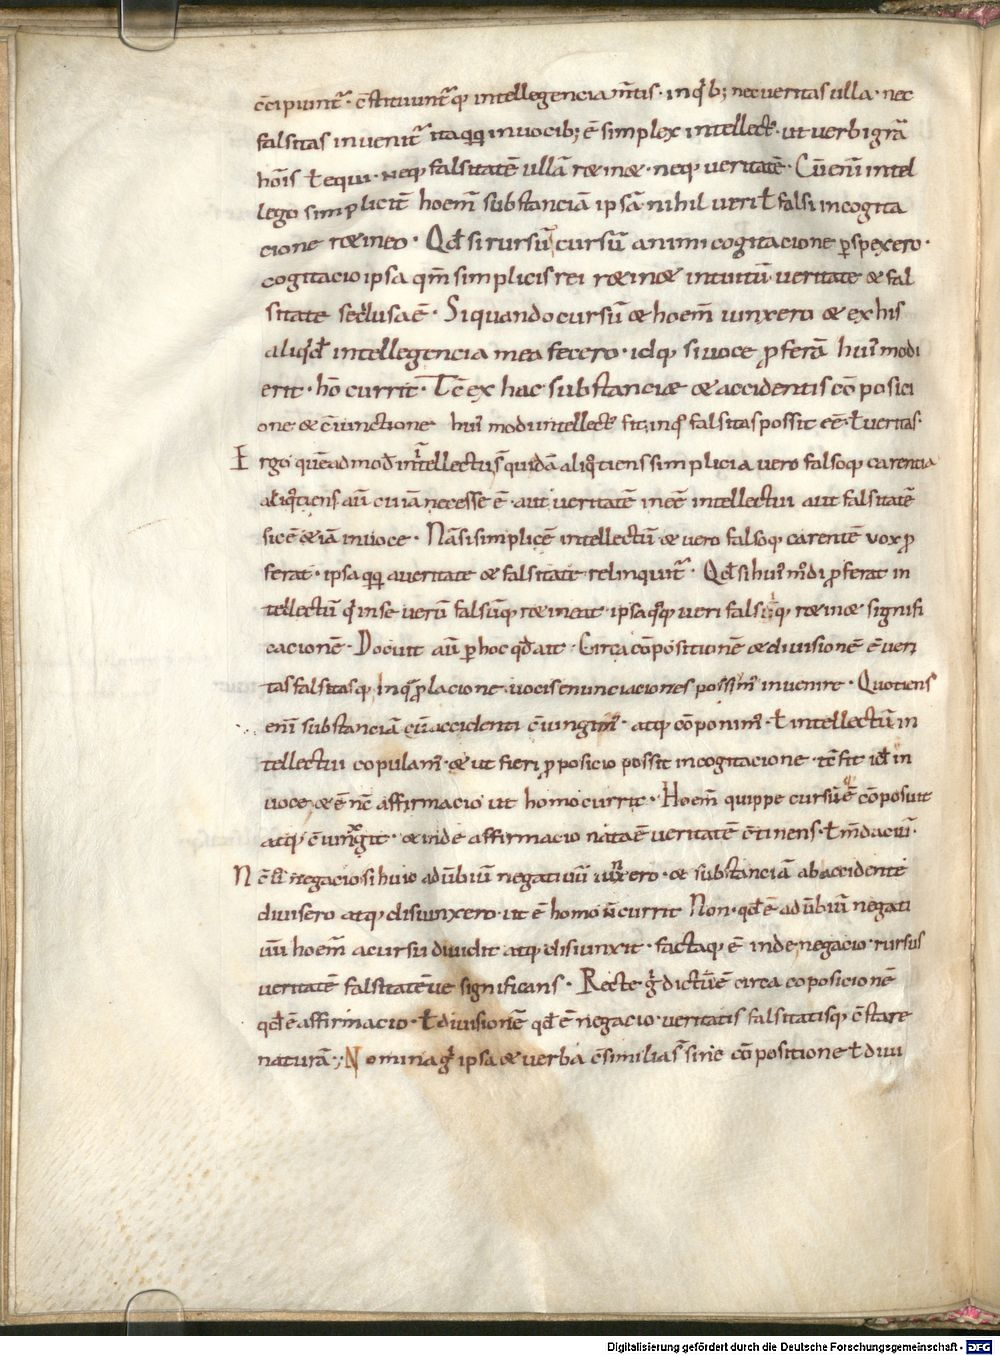 c̄cipiunt᷑· c̄stituunt᷑q; intellegencia n̄tis· in q̍b; nec ueritas ulla· nec
falsitas inuenit᷑ itaq; q; in uocib; ē simplex intellect᷒· ut uerbi grā
hoīs ł equi· neq; falsitatē ullā retinet· neq; ueritatē· Cū eni intel
lego simplicit̄ hoem̄ substanciā ipsā nihil ueri ł falsi in cogita
cione retineo· Qd̄ si rursū cursū animi cogitacione ꝑspexero·
cogitacio ipsa qm̄ simplicis rei retinet intuitū ueritate et fal
sitate seclusa ē· Si quando cursū et hoem̄ iunxero et ex his
aliq̍d̄ intellegencia mea fecero· idq; si uoce ꝓferā hui᷒ modi
erit· hō currit· Tc̄ ex hac substanciæ et accidentis cōposici
one et c̄iunctione hui᷒ modi intellect᷒ fit; in q͂ falsitas possit eē· ł ueritas·
Ergo quēadmod̄ in intellectu s̄ quidā aliq̊tiens simplicia uero falsoq; carencia
aliq̊tiens aū cui iā necesse ē· aut ueritatē ineē intellectui aut falsitatē
sic ē et iā in uoce· Nā si simplicē intellectū et uero falsoq; carentē uox ꝓ
ferat· ipsa q; q; a ueritate et falsitate relinquit᷑· Qd̄ si hui᷒ m̊di ꝓferat in
tellectū q̍ in se uerū falsūq; retineat· ipsa q̊q; ueri falsiq; retinet signifi
cacionē· Docuit aū ꝑ hoc qd̄ ait· Circa cōpositionē et diuisionē ē ueri
tas falsitasq; In q͂ ꝓlacione uocis enunciaciones possim᷒ inuenire· Quotiens
eni substanciā cū accidenti c̄iungim᷒· atq; cōponim᷒· ł intellectū in
tellectui copulam᷒· et ut fieri ꝓposicio possit in cogitacione· tc̄ fit id̄ in
uoce; et ē nc̄ affirmacio ut homo currit· Hoem̄ quippe cursū q̍ cōposuit
atq; c̄iunxit· et inde affirmacio nata ē ueritatē c̄tinens· ł m̄daciū·
Nc̄ ū negacio si huic aduƀiū negatiuū iunxero· et substanciā ab accidente
diuisero atq; disiunxero· ut ē homo n̄ currit Non· qd̄ ē aduƀiū negati
uū hoem̄ a cursu diuidit atq; disiunxit· factaq; ē inde negacio· rursus
ueritatē falsitatē ue significans· Recte g̍ dictū ē circa coposicionē
qd̄ ē affirmacio· ł diuisionē qd̄ ē negacio· ueritatis falsitatisq; c̄stare
naturā·; Nomina g̍ ipsa et uerba c̄similia s̄ sine cōpositione ł diui
Digitalisierung gefördert durch die Deutsche Forschungsgemeinschaft - DFG